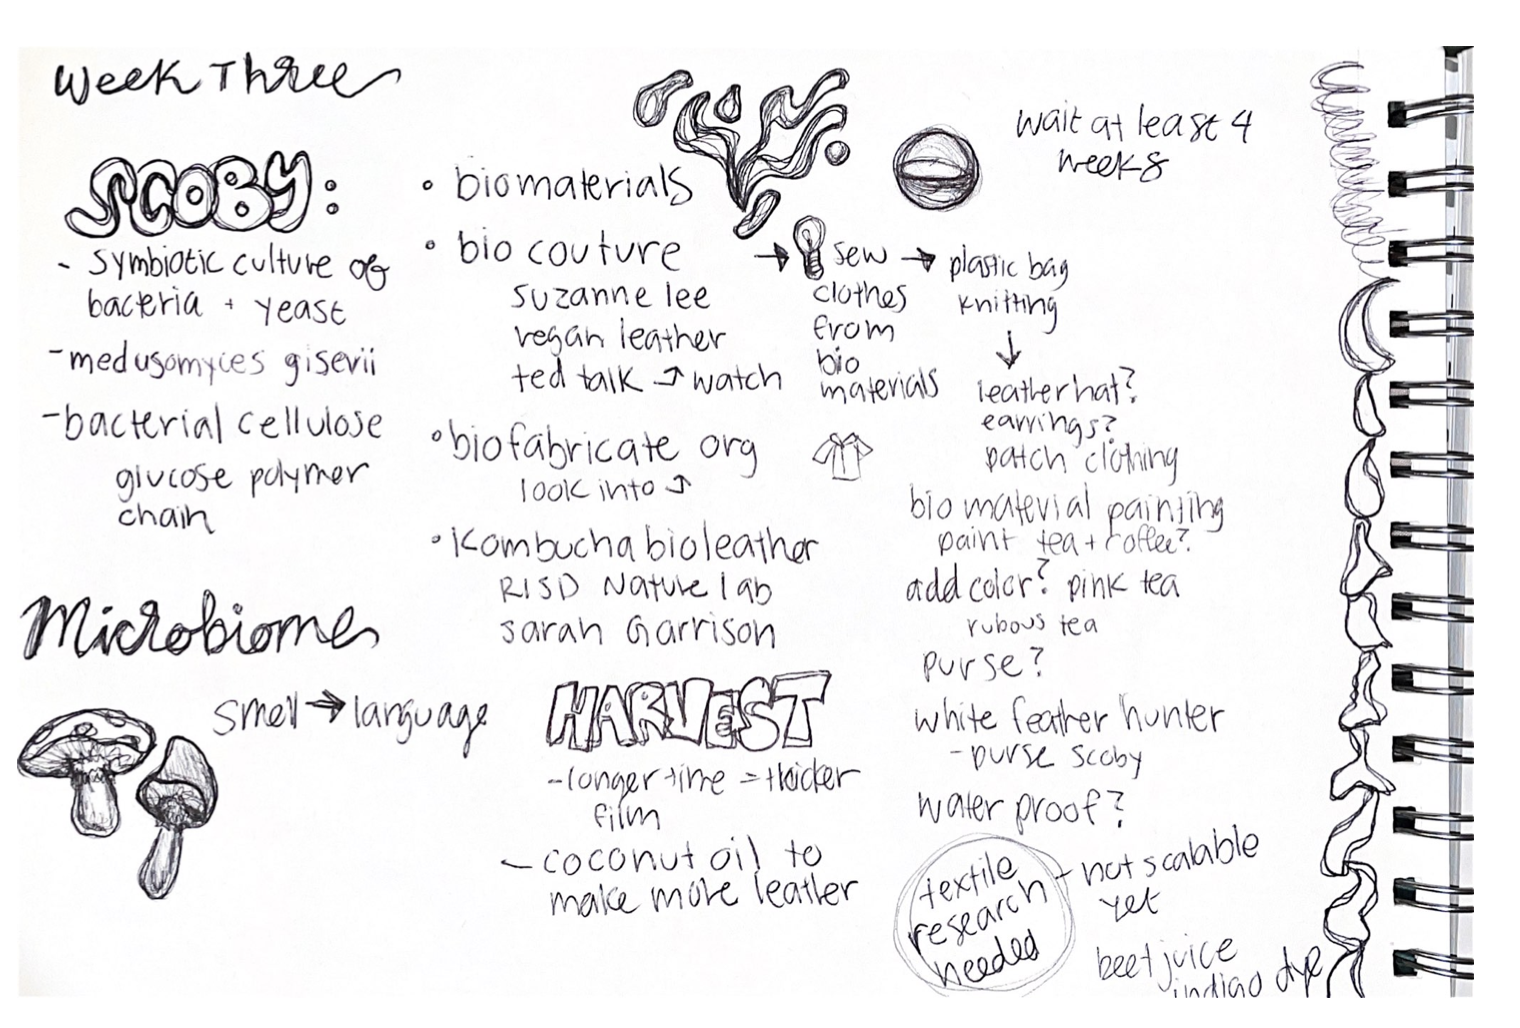 Week Three
SCOBY:
- symbiotic culture of
bacteria + yeast
- medusomyces gisevii
- bacterial cellulose
glucose polymer
chain
Microbiome
smell → language
• biomaterials
• bio couture
suzanne lee
vegan leather
ted talk ⤴ watch
• biofabricate org
look into ⤴
• Kombucha bioleather
RISD Nature lab
Sarah Garrison
HARVEST
- longer time = thicker
film
- coconut oil to
make more leather
wait at least 4
weeks
→ sew → plastic bag
knitting
clothes
from
bio
materials
↓
leather hat?
earrings?
patch clothing
bio material painting
paint tea + coffee?
add color? pink tea
rubous tea
purse?
white feather hunter
- purse scoby
water proof?
textile
research
needed
- not scalable
yet
beet juice
indigo dye